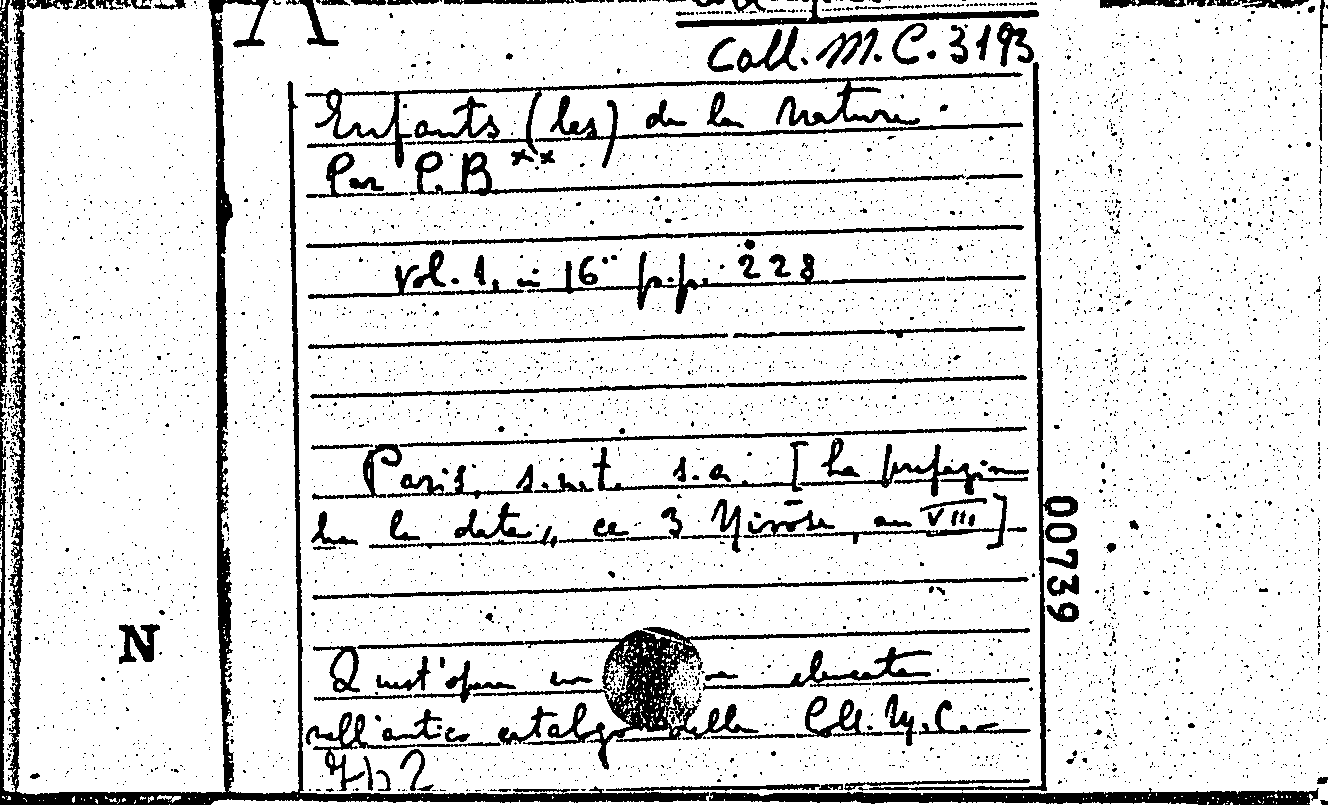 Coll. M. C. 3193
Enfants (les) de la nature.
Par P. B **
vol. 1, in 16° p.p. 228
Paris, s.n.t. s.a. [La prefazione
ha la date,, ce 3 Nivôse, an VIII]
Quest'opera elencata
nell'antico catalogo della Coll. M. C.
00739
N